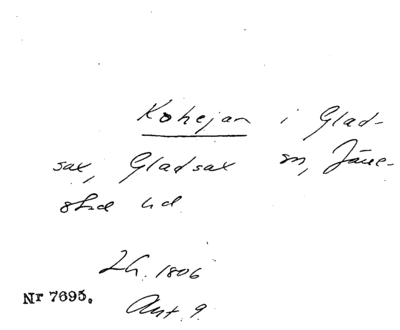 Kohejan i Glad-
sax, Gladsax sn, Järre-
stad hd
Lh. 1806
Nr 7695.
Akt 9.